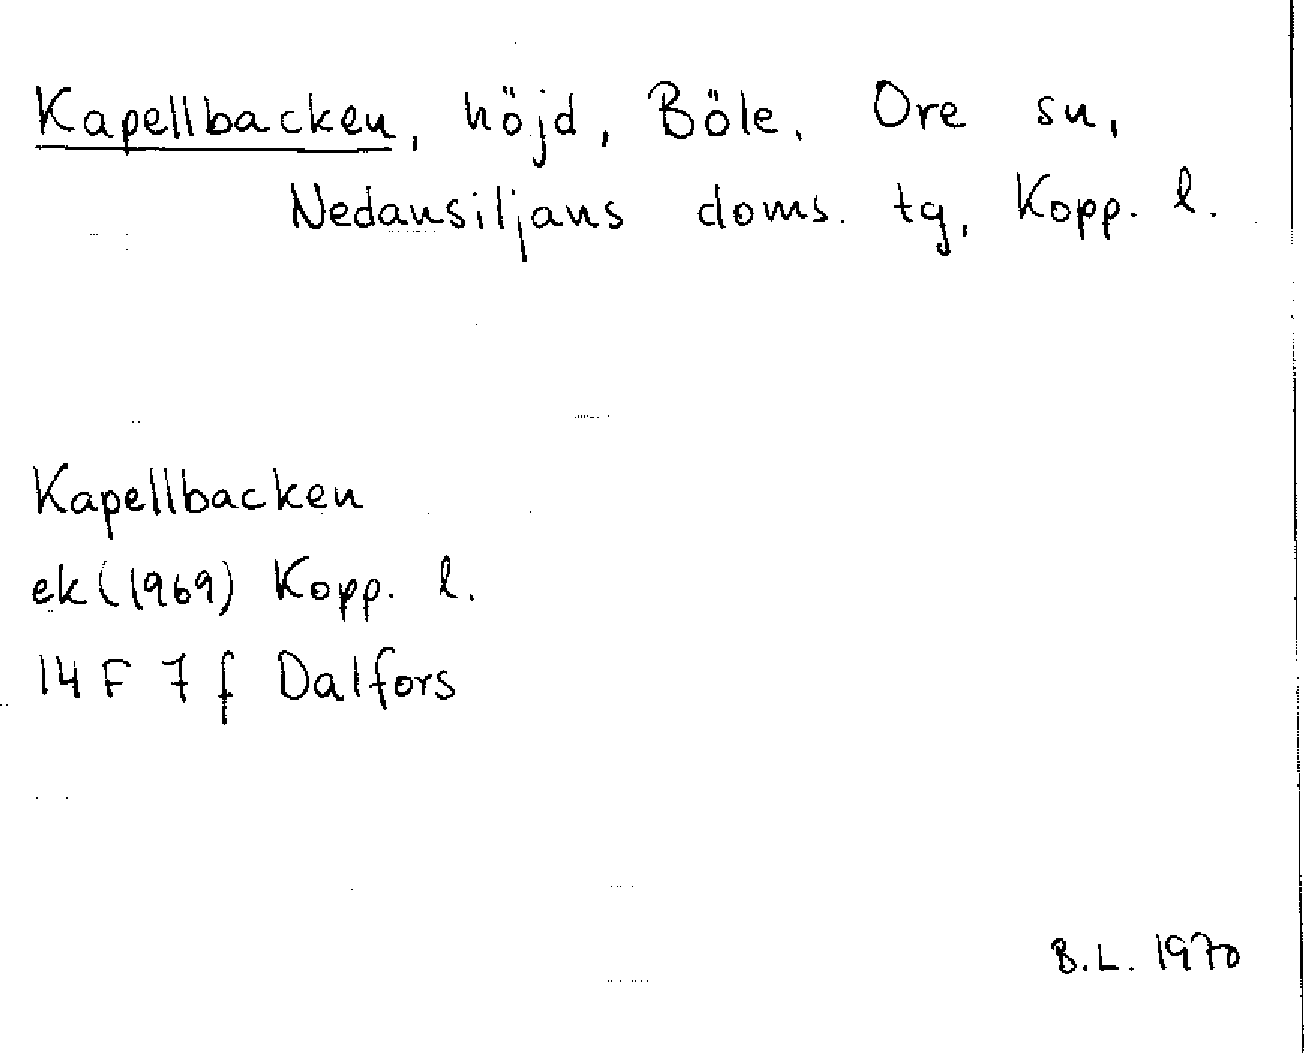 Kapellbacken, höjd, Böle, Ore sn,
Nedansiljans doms. tg, Kopp. l.
Kapellbacken
ek (1969) Kopp. l.
14 F 7 f Dalfors
B.L. 1970